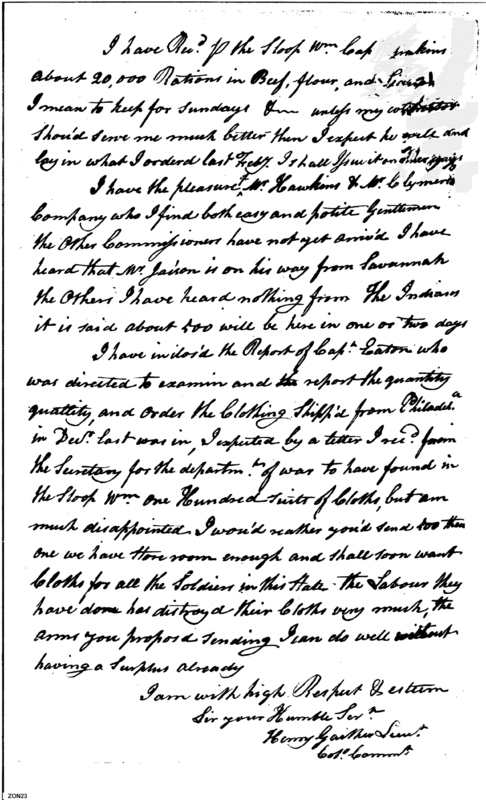 I have Rec.d p the Sloop Wm Cap Jenkins
about 20,000 Rations in Beef, flour, and
I mean to keep for sundays & unless my contractor
shou'd serve me much better then I expect he will and
lay in what I orderd last Feby. I shall Issue it on other days
I have the pleasure of Mr. Hawkins & Mr. Clymers
Company who I find both easy and polite Gentlemen
the Other Commissioners have not yet arriv'd I have
heard that Mr. Jaison is on his way from Savannah
the Others I have heard nothing from The Indians
it is said about 500 will be here in one or two days
I have inclos'd the Report of Cap.n Eaton who
was directed to examin and the report the quantity
quallety, and order the Clothing Shipp'd from Philadel.a
in Dec.r last was in, I expected by a letter I rec.d from
the Secretary for the departm.t of war to have found in
the Sloop Wm one Hundred suits of Cloths, but am
much disappointed I wou'd reather you'd send 500 then
one we have store room enough and shall soon want
Cloths for all the Soldiers in this State the Labour they
have done has distroyd their Cloths very much, the
arms you propos'd sending I can do well without
having a surplus already
I am with high Respect & esteem
Sir your Humble Ser.t
Henry Gaither Lieu.t
Col.o Comm.t
ZON23